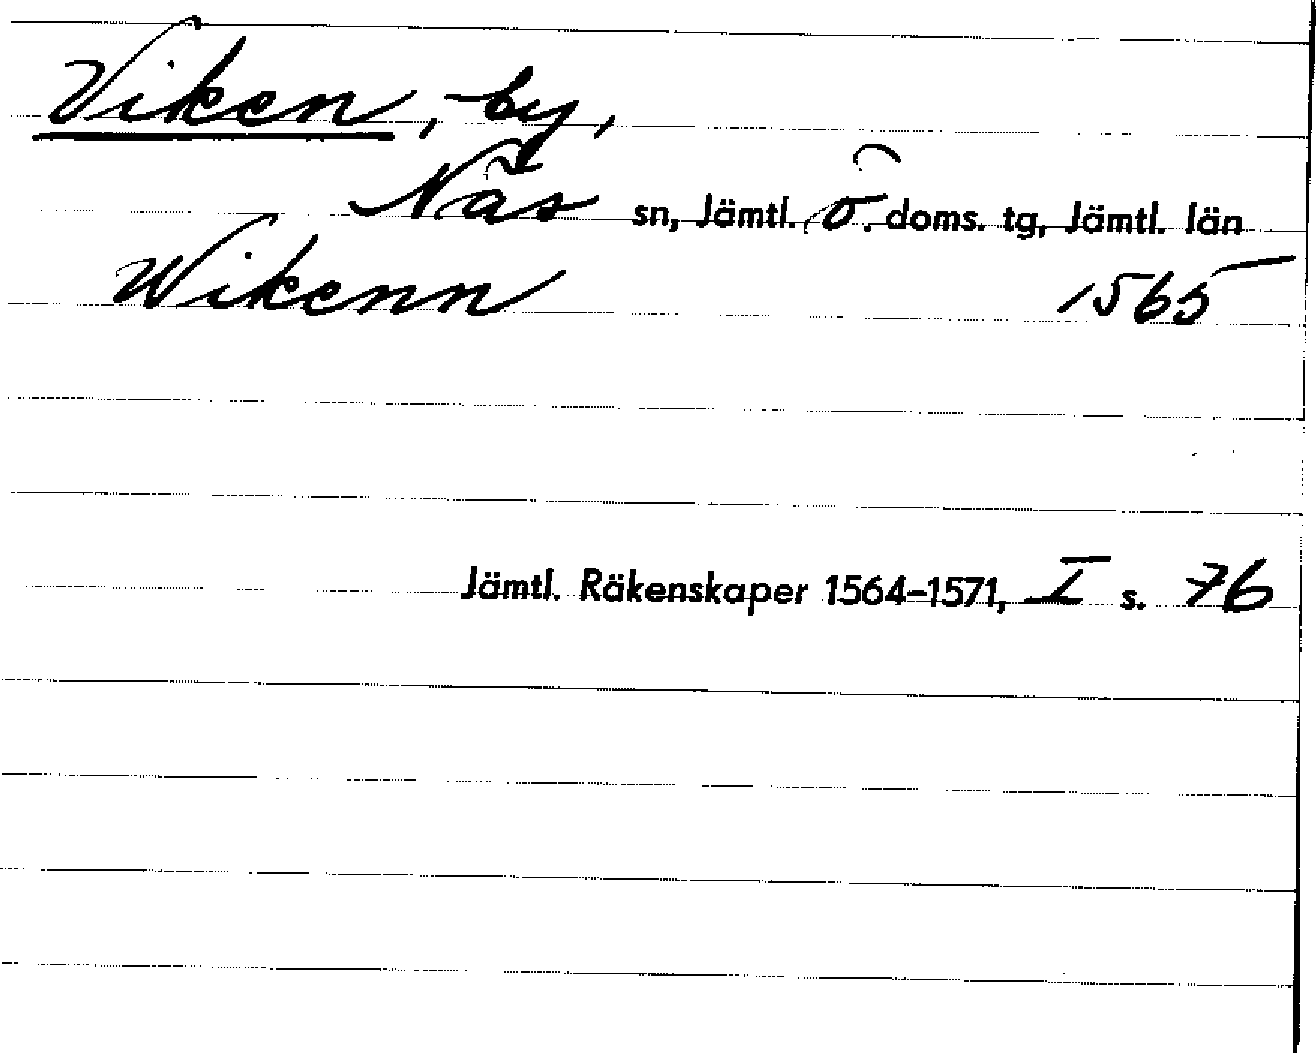 Viken, by,
Näs sn, Jämtl. ö. doms. tg, Jämtl. län
Wikenn 1565
Jämtl. Räkenskaper 1564-1571, I s. 76